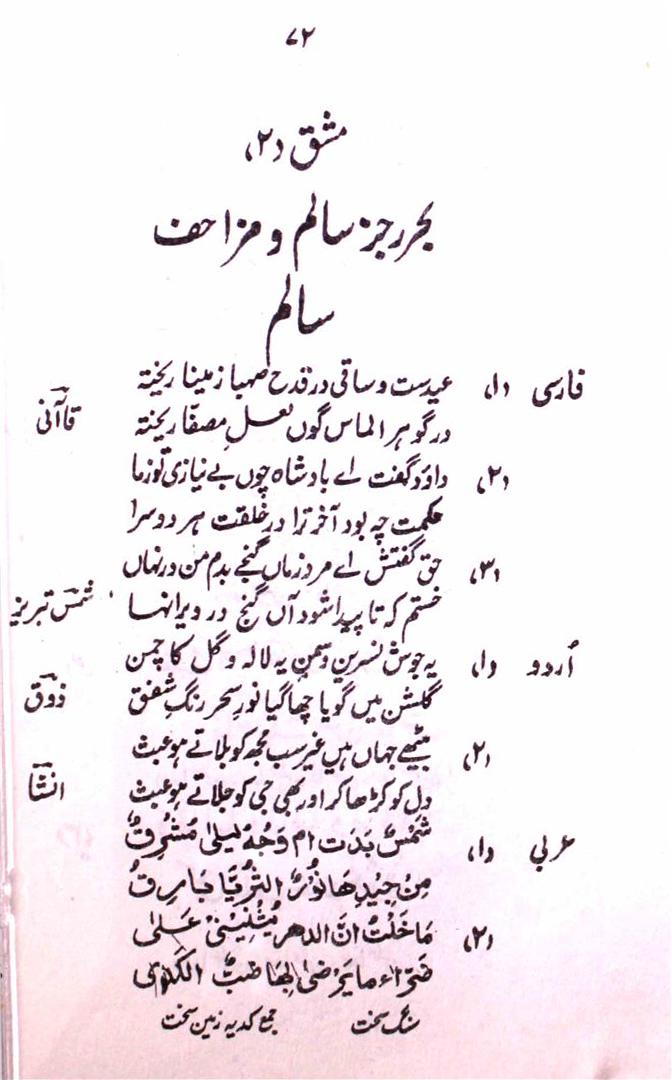 ۷۲
مشق (۲)
بحر رجز سالم و مزاحف
سالم
فارسی (۱) عیدست و ساقی در قدح صہبا ز مینا ریختہ
در گوہر الماس گوں لعل مصفّا ریختہ قاآنی
(۲) داؤد گفت اے بادشاہ چوں بے نیازی تو ز ما
حکمت چہ بود آخر ترا در خلقت ہر دوسرا
(۳) حق گفتش اے مرد زماں گنجے بدم من در نہاں
خستم کہ تا پیدا شود آں گنج در ویرانہا شمس تبریز
اُردو (۱) یہ جوش نسرین و سمن یہ لالہ و گل کا چمن
گلشن میں گویا چھا گیا نورِ سحر رنگِ شفق ذوق
(۲) بیٹھے جہاں ہیں غیر سب مجھ کو بلاتے ہو عبث
دل کو کڑھا کر اور بھی جی کو جلاتے ہو عبث انشا
عربی (۱) شَمْسٌ بَدَت ام وَجْهُ لیلیٰ مُشْرِقٌ
مِنْ جِیْدِهَا نُوْرُ الثُّرَیَّا بَارِقٌ
(۲) مَا خَلْتُ انَّ الدهر یُثْنِیْنِیْ عَلیٰ
ضَرَّاء ما یَرْضیٰ بِهَا ضَبُّ الکُدیٰ
سنگ سخت جمع کدیہ زمین سخت